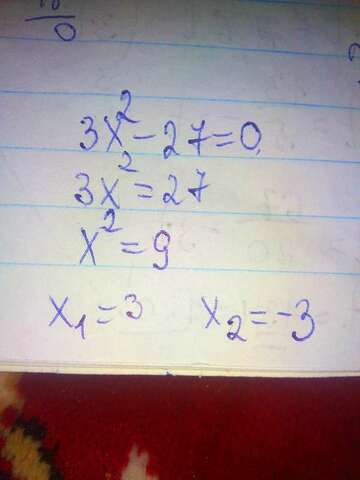 0
3x² - 27 = 0
3x² = 27
x² = 9
x₁ = 3 x₂ = -3